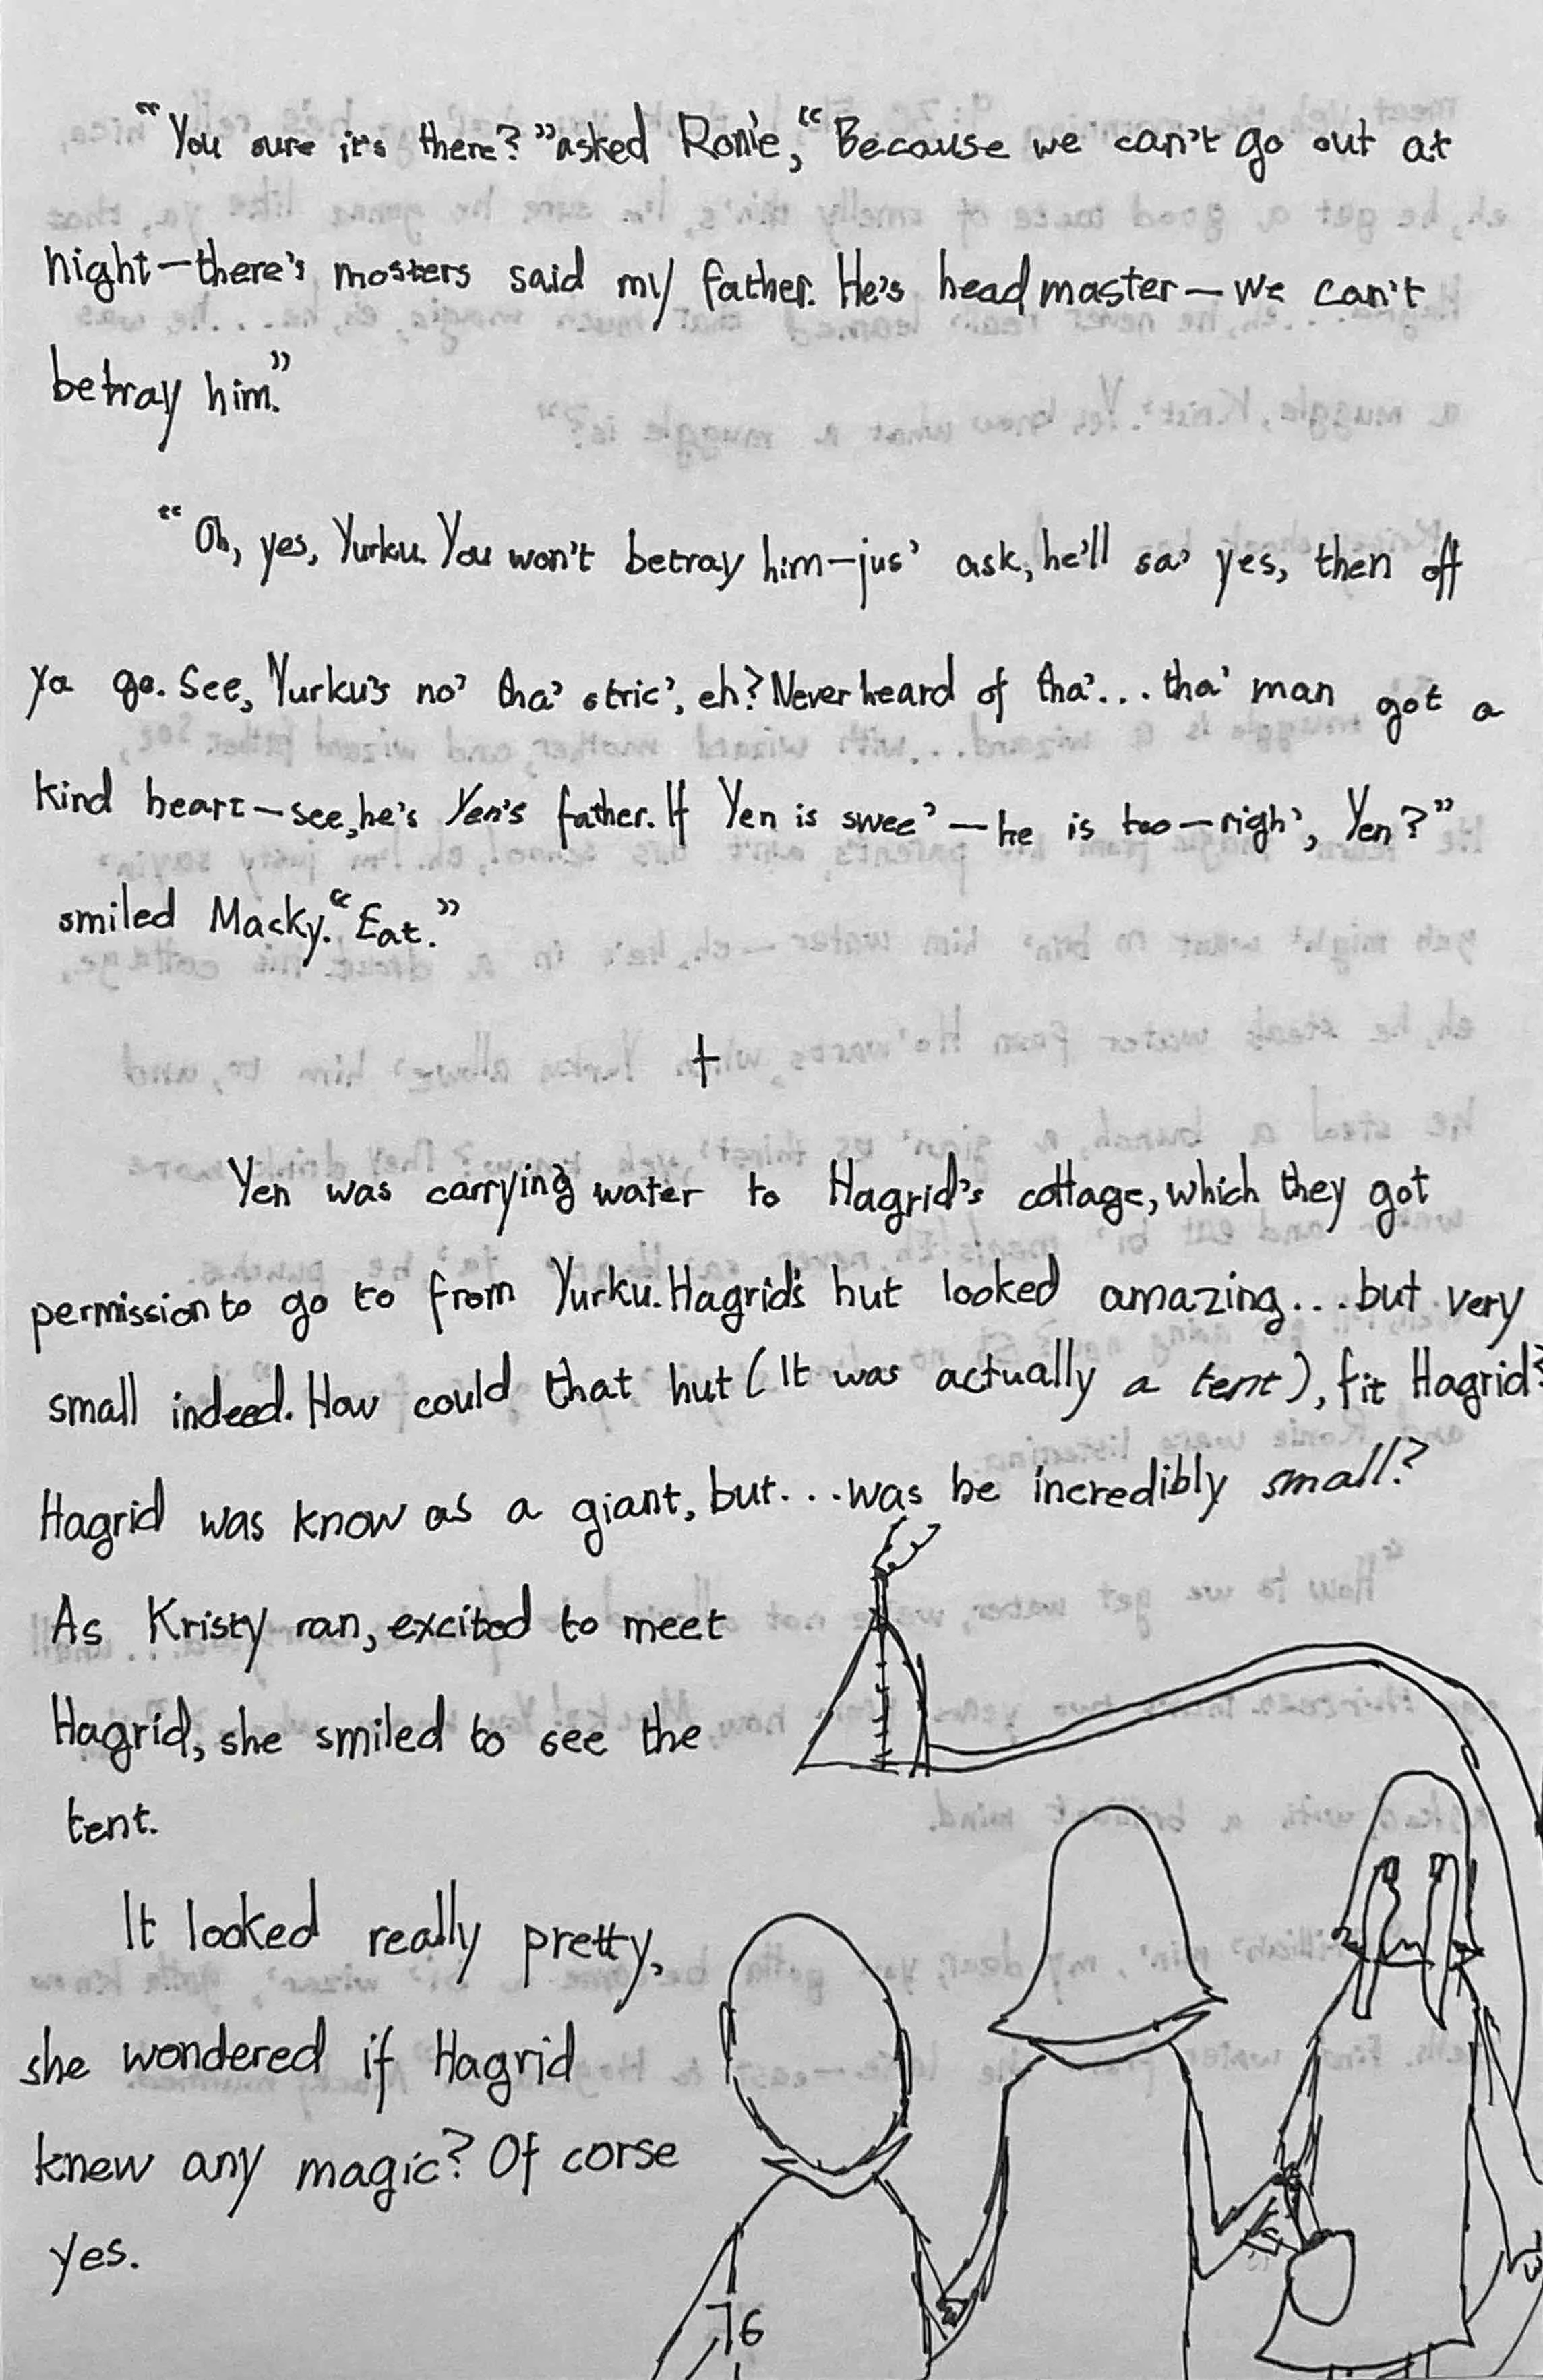 “You sure it's there?” asked Ronie, “Because we can't go out at
night—there's mosters said my father. He's head master—we can't
betray him.”
“Oh, yes, Yurku. You won't betray him—jus' ask, he'll sa' yes, then off
ya go. See, Yurku's no' tha' stric', eh? Never heard of tha'... tha' man got a
kind heart—see, he's Yen's father. If Yen is swee'—he is too—righ', Yen?”
smiled Macky. “Eat.”
+
Yen was carrying water to Hagrid's cottage, which they got
permission to go to from Yurku. Hagrid's hut looked amazing... but very
small indeed. How could that hut (It was actually a tent), fit Hagrid?
Hagrid was know as a giant, but... was he incredibly small?
As Kristy ran, excited to meet
Hagrid, she smiled to see the
tent.
It looked really pretty,
she wondered if Hagrid
knew any magic? Of corse
yes.
76